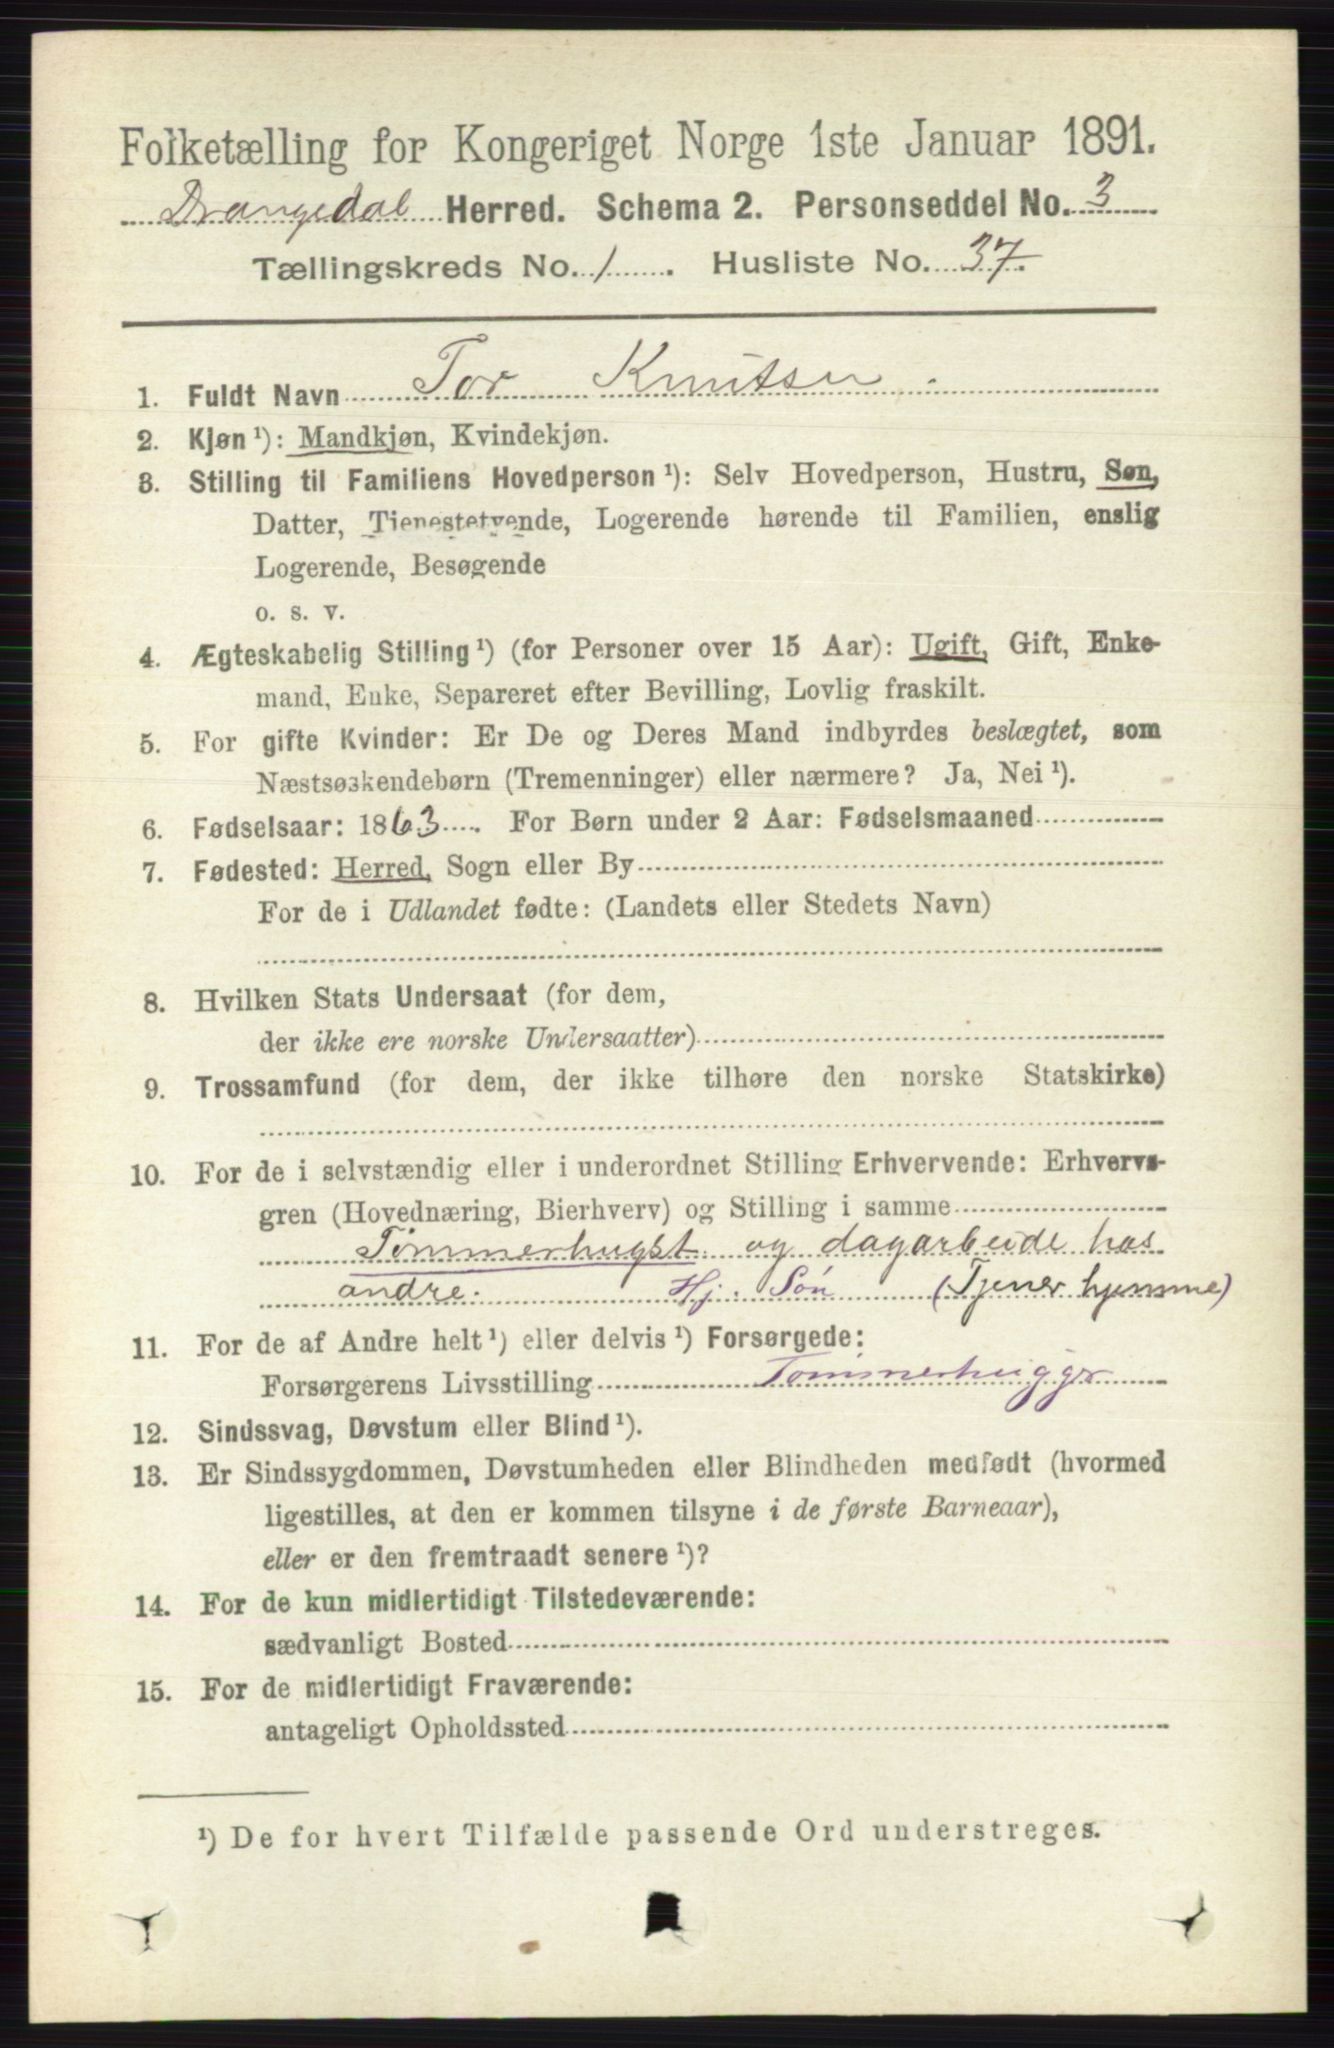 Folketælling for Kongeriget Norge 1ste Januar 1891.
Drangedal Herred. Schema 2. Personseddel No. 3
Tællingskreds No. 1 . Husliste No. 37.
1. Fuldt Navn Tor Knutsen
2. Kjøn ¹): Mandkjøn, Kvindekjøn.
3. Stilling til Familiens Hovedperson ¹): Selv Hovedperson, Hustru, Søn,
Datter, Tjenestetyende, Logerende hørende til Familien, enslig
Logerende, Besøgende
o. s. v.
4. Ægteskabelig Stilling ¹) (for Personer over 15 Aar): Ugift, Gift, Enke-
mand, Enke, Separeret efter Bevilling, Lovlig fraskilt.
5. For gifte Kvinder: Er De og Deres Mand indbyrdes beslægtet, som
Næstsøskendebørn (Tremenninger) eller nærmere? Ja, Nei ¹).
6. Fødselsaar: 1863 . For Børn under 2 Aar: Fødselsmaaned
7. Fødested: Herred, Sogn eller By
For de i Udlandet fødte: (Landets eller Stedets Navn)
8. Hvilken Stats Undersaat (for dem,
der ikke ere norske Undersaatter)
9. Trossamfund (for dem, der ikke tilhøre den norske Statskirke)
10. For de i selvstændig eller i underordnet Stilling Erhvervende: Erhvervs-
gren (Hovednæring, Bierhverv) og Stilling i samme
Tømmerhugst og dagarbeide hos
andre. Hj. Søn (Tjener hjemme)
11. For de af Andre helt ¹) eller delvis ¹) Forsørgede:
Forsørgerens Livsstilling Tømmerhugger
12. Sindssvag, Døvstum eller Blind ¹).
13. Er Sindssygdommen, Døvstumheden eller Blindheden medfødt (hvormed
ligestilles, at den er kommen tilsyne i de første Barneaar),
eller er den fremtraadt senere ¹)?
14. For de kun midlertidigt Tilstedeværende:
sædvanligt Bosted
15. For de midlertidigt Fraværende:
antageligt Opholdssted
¹) De for hvert Tilfælde passende Ord understreges.